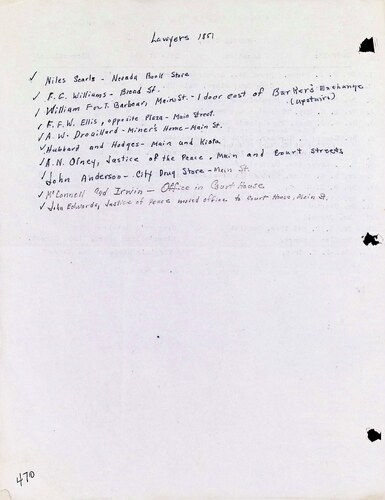 Lawyers 1851
✓ Niles Searls - Nevada Book Store
✓ F.G. Williams - Broad St.
✓ William F. & T. Barbour, Main St. - 1 door east of Barker's Exchange
(upstairs)
✓ F.F.W. Ellis, opposite Plaza - Main Street.
✓ A.W. Drouillard - Miner's Home - Main St.
✓ Hubbard and Hodges - Main and Kiota
✓ A.N. Olney, Justice of the Peace, Main and Court Streets
✓ John Anderson - City Drug Store - Main St.
✓ McConnell and Irwin - Office in Court House
✓ John Edwards, Justice of Peace moved office to Court House, Main St.
470